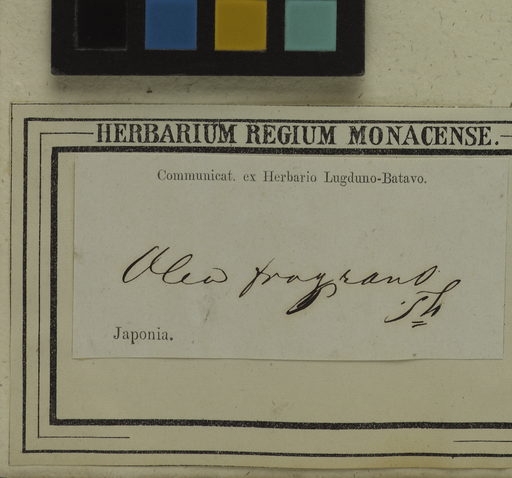 HERBARIUM REGIUM MONACENSE.
Communicat. ex Herbario Lugduno-Batavo.
Olea fragrans
Th
Japonia.